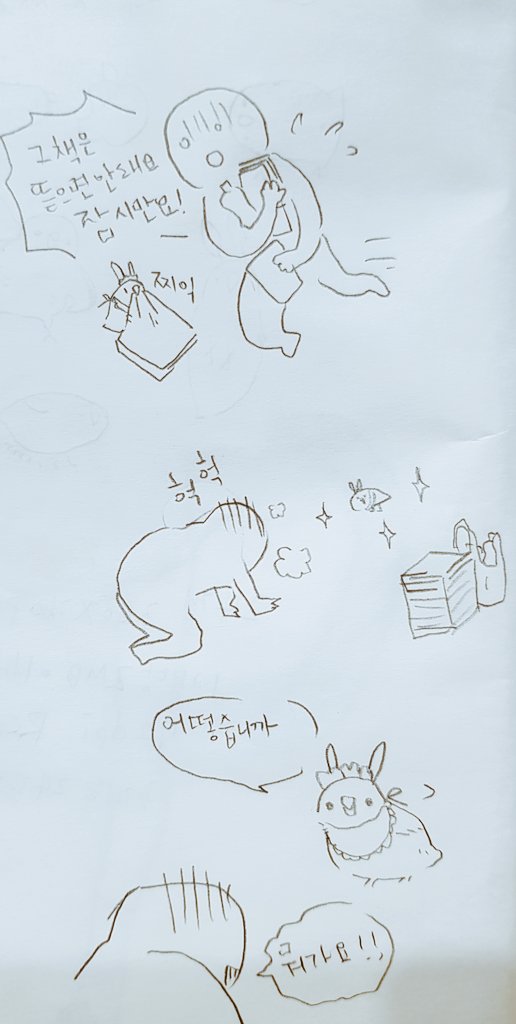 그 책은
뜯으면 안돼요
잠시만요!
찌익
헉헉
어떻습니까
뭐가요!!